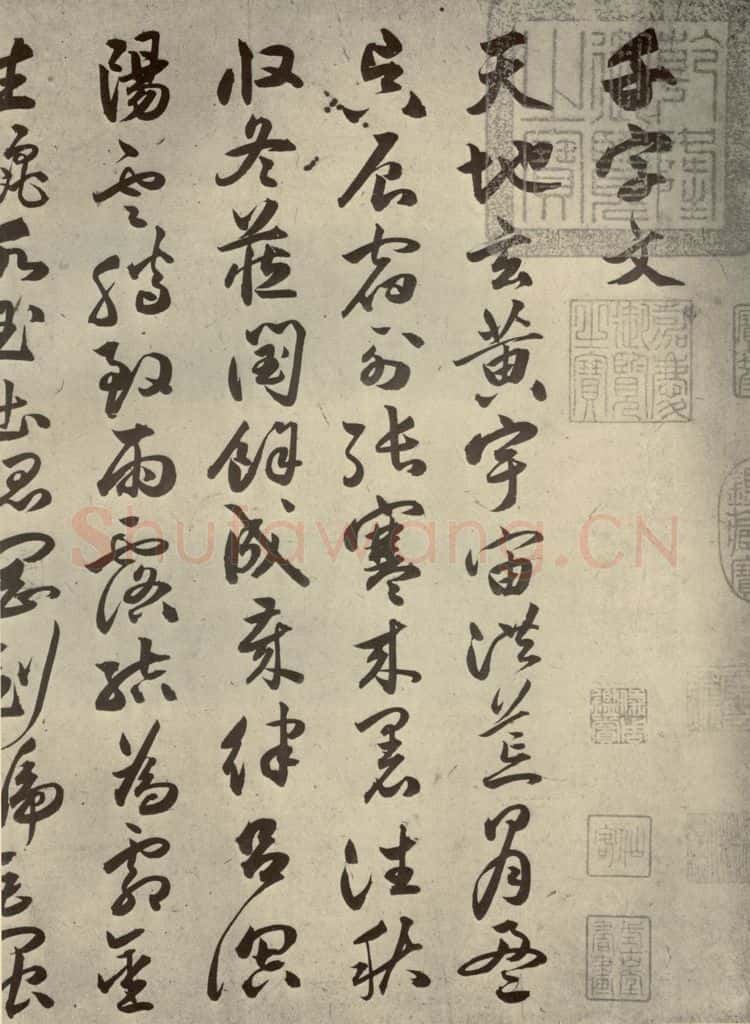 千字文
天地玄黃宇宙洪荒日月盈
昃辰宿列張寒來暑往秋
收冬藏閏餘成歲律呂調
陽雲騰致雨露結為霜金
生麗水玉出崑岡劍號巨闕
乾隆御覽之寶
嘉慶御覽之寶
Shufawang.CN